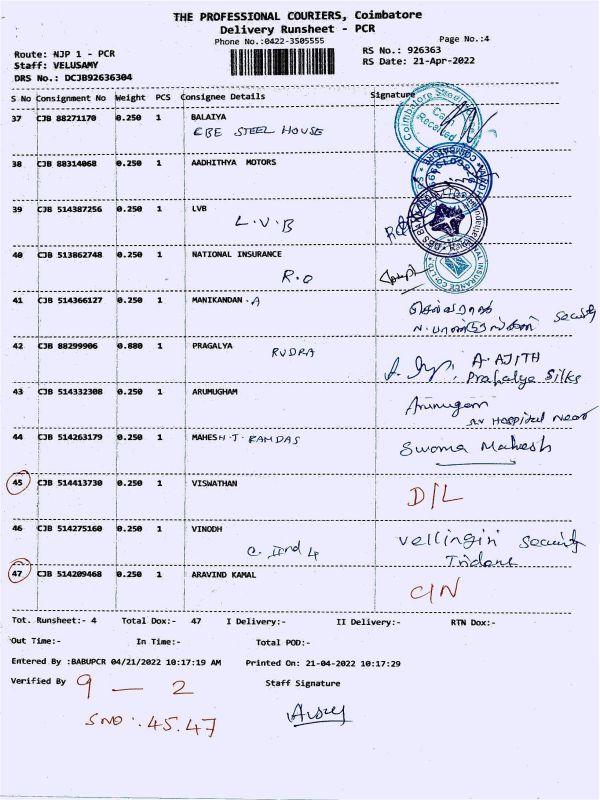 THE PROFESSIONAL COURIERS, Coimbatore
Delivery Runsheet - PCR
Phone No.:0422-3505555
Page No.:4
Route: NJP 1 - PCR
RS No.: 926363
Staff: VELUSAMY
RS Date: 21-Apr-2022
DRS No.: DCJB92636304
S No Consignment No Weight PCS Consignee Details Signature
37 CJB 88271170 0.250 1 BALAIYA
CBE STEEL HOUSE
38 CJB 88314068 0.250 1 AADHITHYA MOTORS
39 CJB 514387256 0.250 1 LVB
L.V.B
40 CJB 513862748 0.250 1 NATIONAL INSURANCE
R.O
41 CJB 514366127 0.250 1 MANIKANDAN .A
Security
42 CJB 88299906 0.880 1 PRAGALYA
RUDRA
A. AJITH
Prahalya Silks
43 CJB 514332308 0.250 1 ARUMUGHAM
Arumugam
Hospital Near
44 CJB 514263179 0.250 1 MAHESH.T.RAMDAS
Mahesh
45 CJB 514413730 0.250 1 VISWATHAN
D/L
46 CJB 514275160 0.250 1 VINODH
Vellingiri Security
47 CJB 514209468 0.250 1 ARAVIND KAMAL
C/N
Tot. Runsheet:- 4 Total Dox:- 47 I Delivery:- II Delivery:- RTN Dox:-
Out Time:- In Time:- Total POD:-
Entered By :BABUPCR 04/21/2022 10:17:19 AM Printed On: 21-04-2022 10:17:29
Verified By 9 - 2 Staff Signature
S NO : 45.47